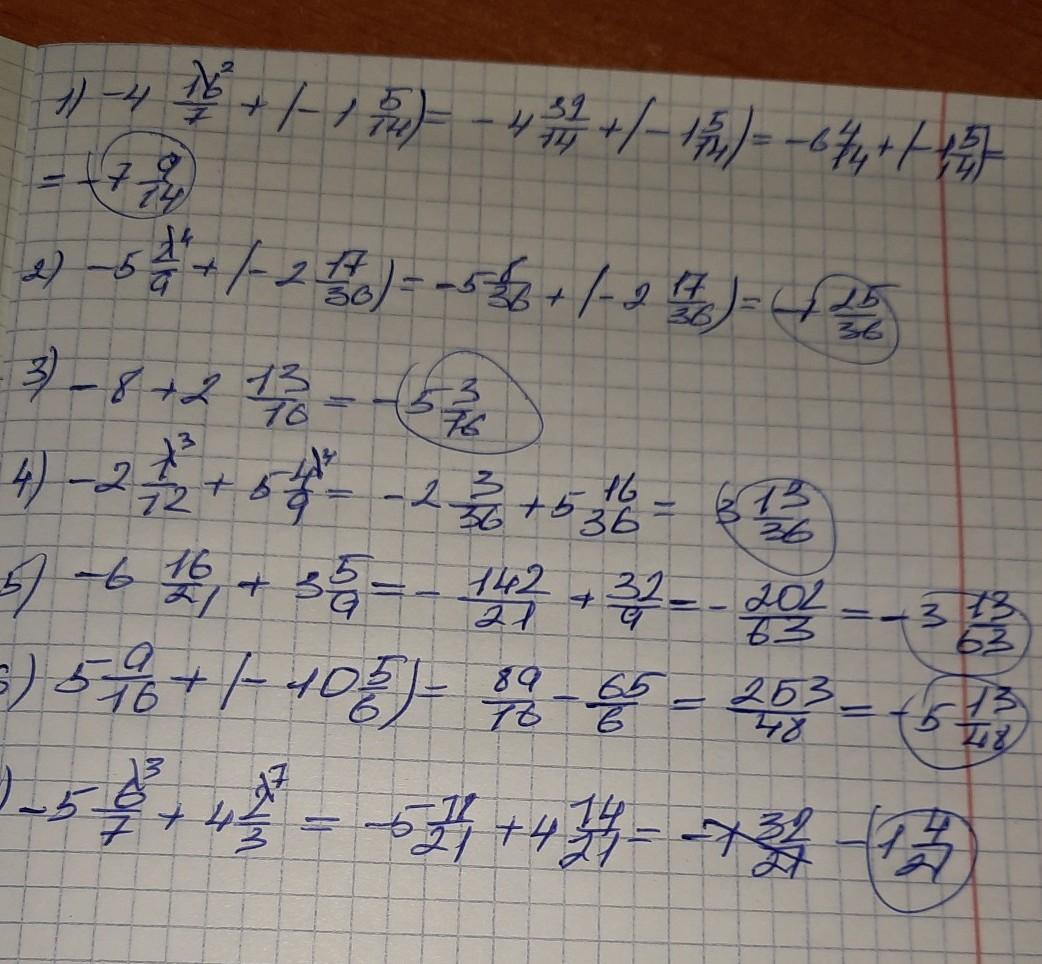 1) -4 16/7 + (-1 5/14) = -4 32/14 + (-1 5/14) = -6 4/14 + (-1 5/14) =
= -7 9/14
2) -5 2/9 + (-2 17/36) = -5 8/36 + (-2 17/36) = -7 25/36
3) -8 + 2 13/16 = -5 3/16
4) -2 1/12 + 5 4/9 = -2 3/36 + 5 16/36 = 3 13/36
5) -6 16/21 + 3 5/9 = - 142/21 + 32/9 = - 202/63 = -3 13/63
6) 5 9/16 + (-10 5/6) = 89/16 - 65/6 = 253/48 = -5 13/48
) -5 6/7 + 4 2/3 = -5 18/21 + 4 14/21 = - 1 4/21